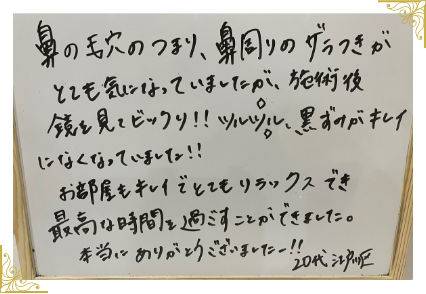 鼻の毛穴のつまり、鼻周りのザラつきが
とても気になっていましたが、施術後
鏡を見てビックリ!! ツルツル、黒ずみがキレイ
になくなっていました!!
お部屋もキレイでとてもリラックスでき
最高な時間を過すことができました。
本当にありがとうございましたー!!
20代 江戸川区